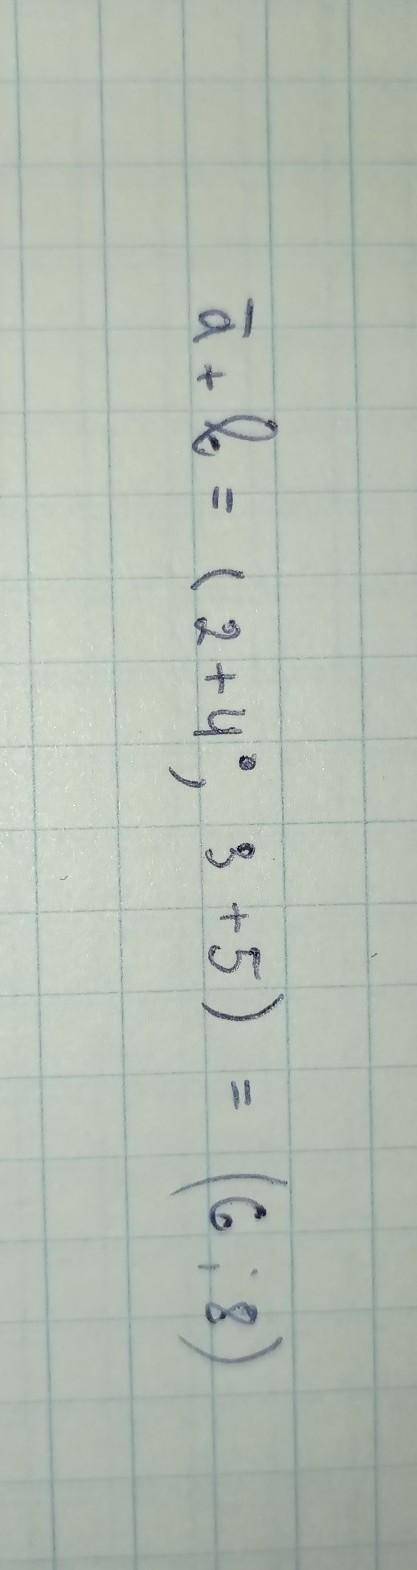 ā + b = (2+4; 3+5) = (6; 8)